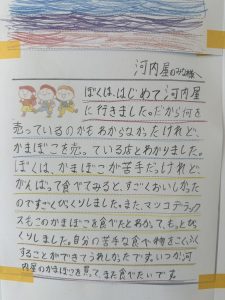 河内屋のみな様へ
ぼくは、はじめて河内屋
に行きました。だから何を
売っているのかをわからなかたけれど、
かまぼこを売っている店とわかりました。
ぼくは、かまぼこが苦手だっけれど、
がんばって食べてみると、すごくおいしかった
のですごくびくりしました。また、マツコデラック
スもこのかまぼこを食べたとわかって、もっとび
くりしました。自分の苦手な食べ物をこくふく
することができてうれしかたです。いつか河
内屋のかまぼこを買て、また食べたいです